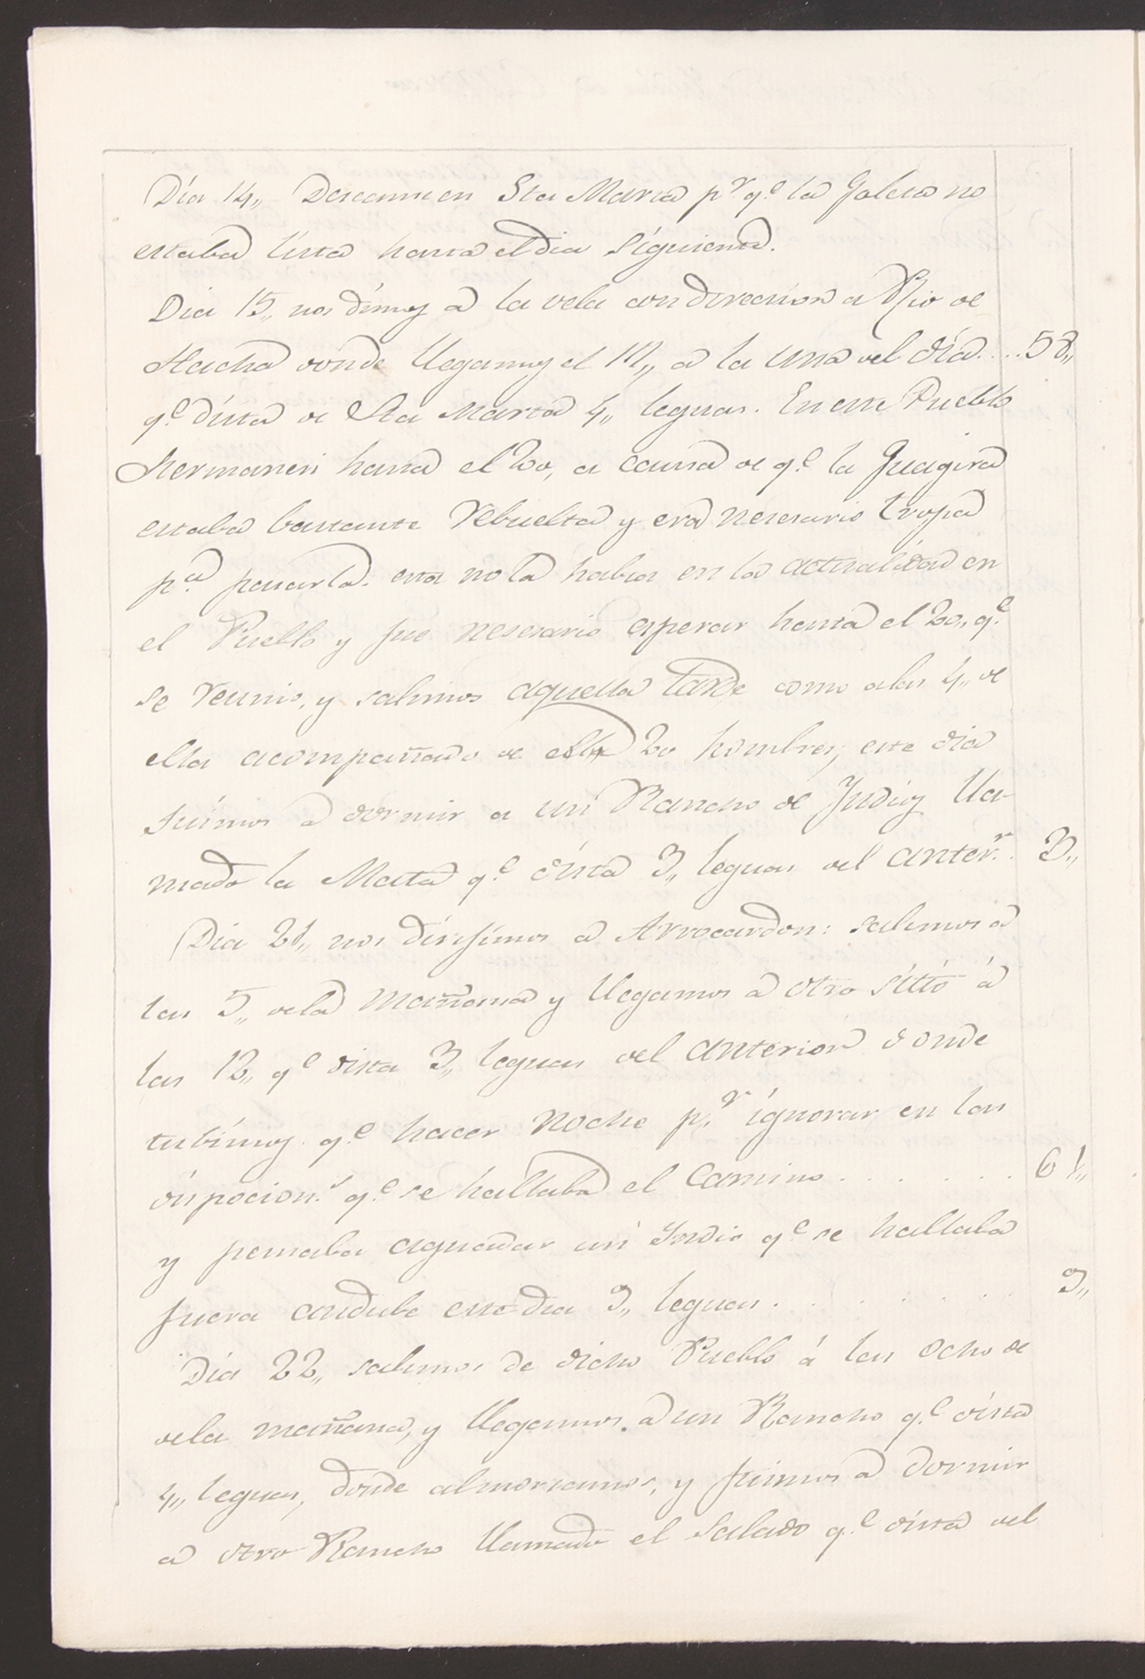 Dia 14,, Descanse en Sta Marta pr. qe. la Goleta no
estaba lista hasta el dia siguiente.
Dia 15,, nos dimos a la vela con direccion a Rio de
Hacha donde llegamos el 17,, a la una del dia.... 58,,
qe. dista de Sta Marta 4,, leguas. En este Pueblo
Permaneci hasta el 20, a causa de qe. la Guagira
estaba bastante rebuelta y era nesesario tropa
pa. pasarla. esta no la habia en la actualidad en
el Pueblo y fue nesesario esperar hasta el 20,, qe.
se reunio, y salimos aquella tarde como a las 4,, de
ella acompañado de 20 hombres, este dia
fuimos a dormir a un Rancho de Indios lla-
mado la Mata qe. dista 3,, leguas del anterr. . 3,,
Dia 21,, nos dirijimos a Arrocardon: salimos a
las 5,, de la mañana y llegamos a otro sitio á
las 12,, qe. dista 3,, leguas del anterior donde
tubimos qe. hacer noche pr. ignorar en las
disposicions. qe. se hallaba el camino . . . . . . . 61,,
y pensaba aguardar un Indio qe. se hallaba
fuera andube este dia 3,, leguas . . . . . . . . 3,,
Dia 22,, salimos de dicho Pueblo á las ocho de
de la mañana, y llegamos a un Rancho qe. dista
4,, leguas, donde almorsamos, y fuimos a dormir
a otro Rancho llamado el Salado qe. dista del